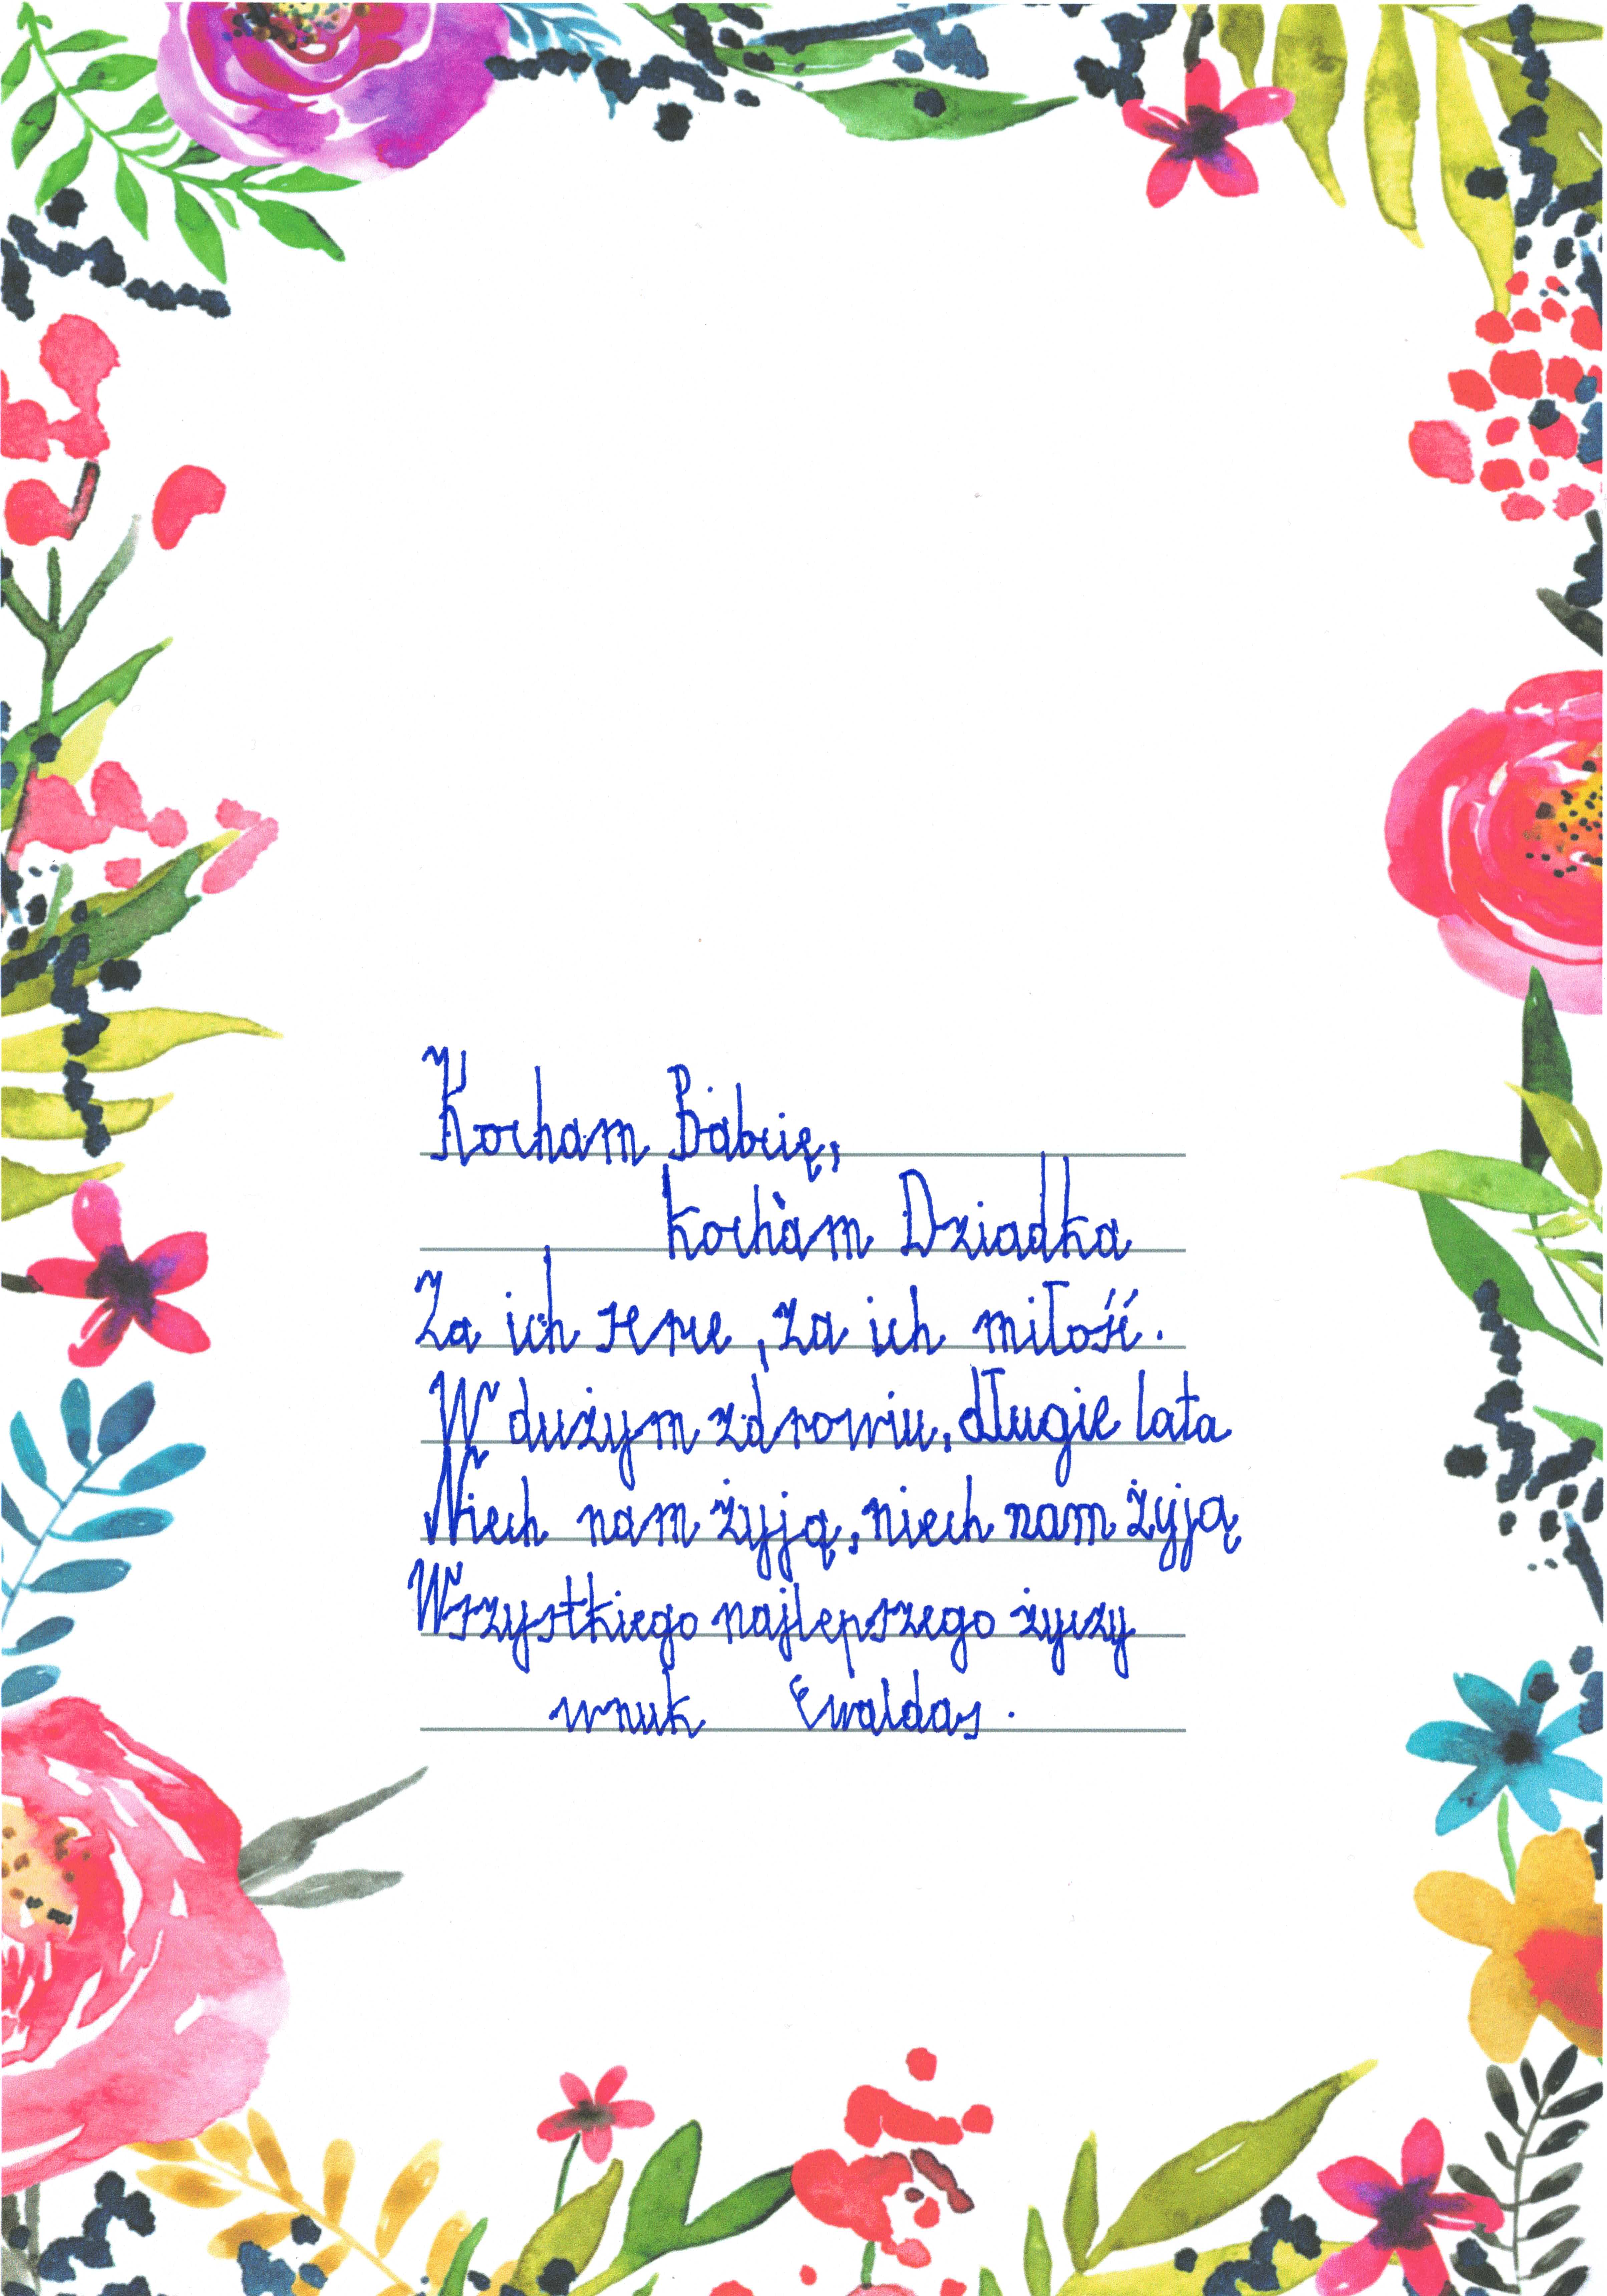 Kocham Babcię,
kocham Dziadka
Za ich serce, za ich miłość.
W dużym zdrowiu, długie lata
Niech nam żyją, niech nam żyją
Wszystkiego najlepszego życzy
wnuk Ewaldas.